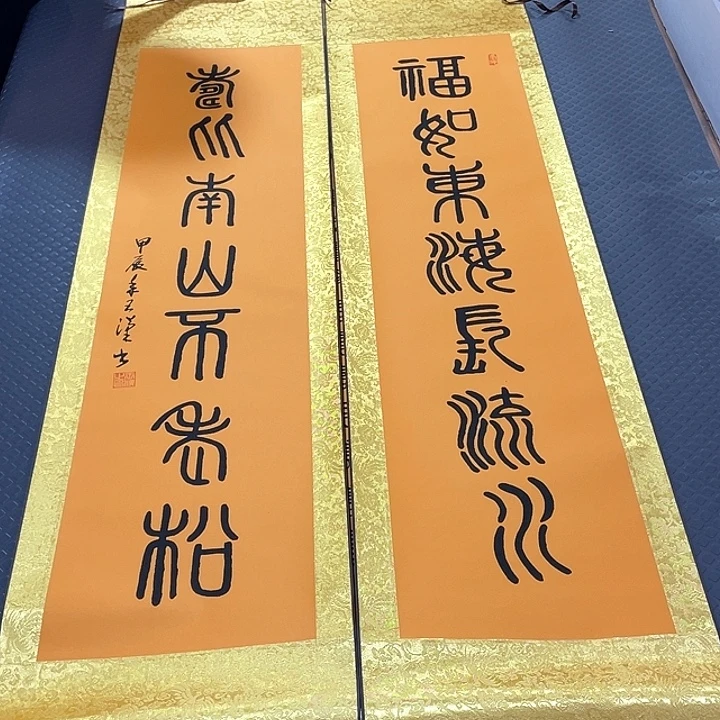 福如東海長流水
壽比南山不老松
甲辰年书